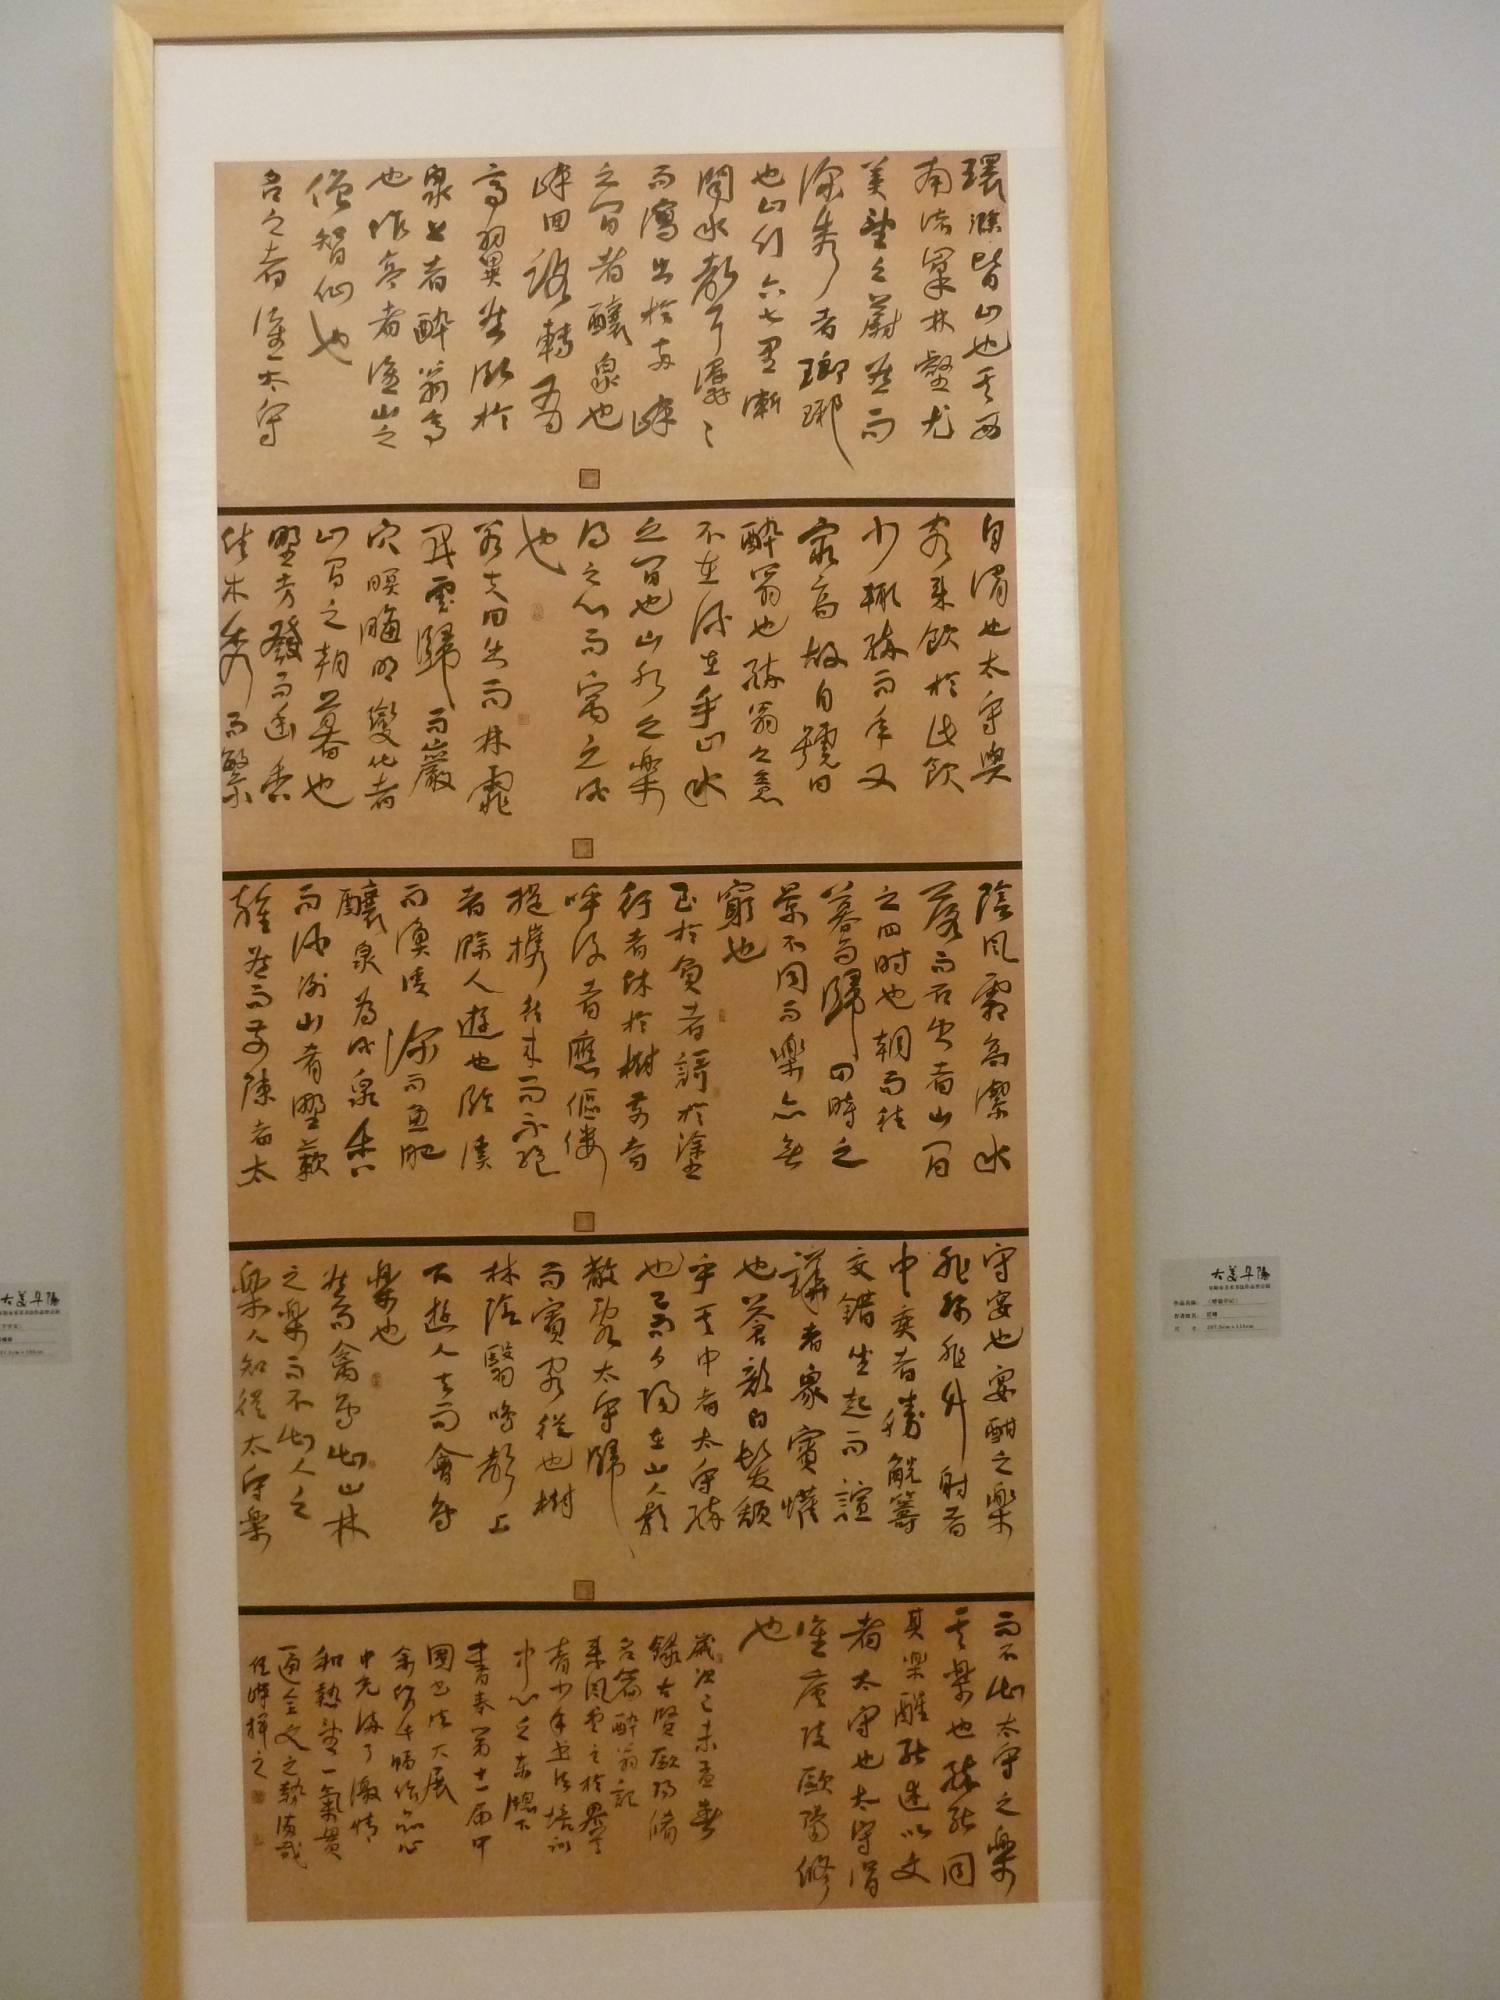 環滁皆山也其西
南諸峯林壑尤
美望之蔚然而
深秀者瑯琊
也山行六七里漸
聞水聲潺々
而瀉出於兩峰
之間者釀泉也
峰回路轉有
亭翼然臨於
泉上者醉翁亭
也作亭者誰山之
僧智仙也
名之者誰太守
自謂也太守與
客來飲於此飲
少輒醉而年又
最高故自號曰
醉翁也醉翁之意
不在酒在乎山水
之間也山水之樂
得之心而寓之酒
也
若夫日出而林霏
開雲歸而巖
穴暝晦明變化者
山間之朝暮也
野芳發而幽香
佳木秀而繁
陰風霜高潔水
落而石出者山間
之四時也朝而往
暮而歸四時之
景不同而樂亦無
窮也
至於負者謌於塗
行者休於樹前者
呼後者應傴僂
提攜往來而不絕
者滁人遊也臨溪
而漁溪深而魚肥
釀泉為酒泉香
而酒洌山肴野蔌
雜然而前陳者太
守宴也宴酣之樂
非絲非竹射者
中奕者勝觥籌
交錯坐起而諠
譁者衆賓懽
也蒼顏白髮頹
乎其中者太守醉
也已而夕陽在山人影
散亂太守歸
而賓客從也樹
林陰翳鳴聲上
下遊人去而禽鳥
樂也
然而禽鳥知山林
之樂而不知人之
樂人知從太守樂
而不知太守之樂
其樂也醉能同
其樂醒能述以文
者太守也太守謂
誰廬陵歐陽修
也
歲次乙未孟春
錄古賢歐陽脩
名篇醉翁記
青少年書法培訓
中心之東牕下
書春第十一屆中
國書法大展
和熱望一氣貫
大美丹陽
作品名稱：《醉翁亭記》
作者姓名：
尺 寸：
大美丹陽